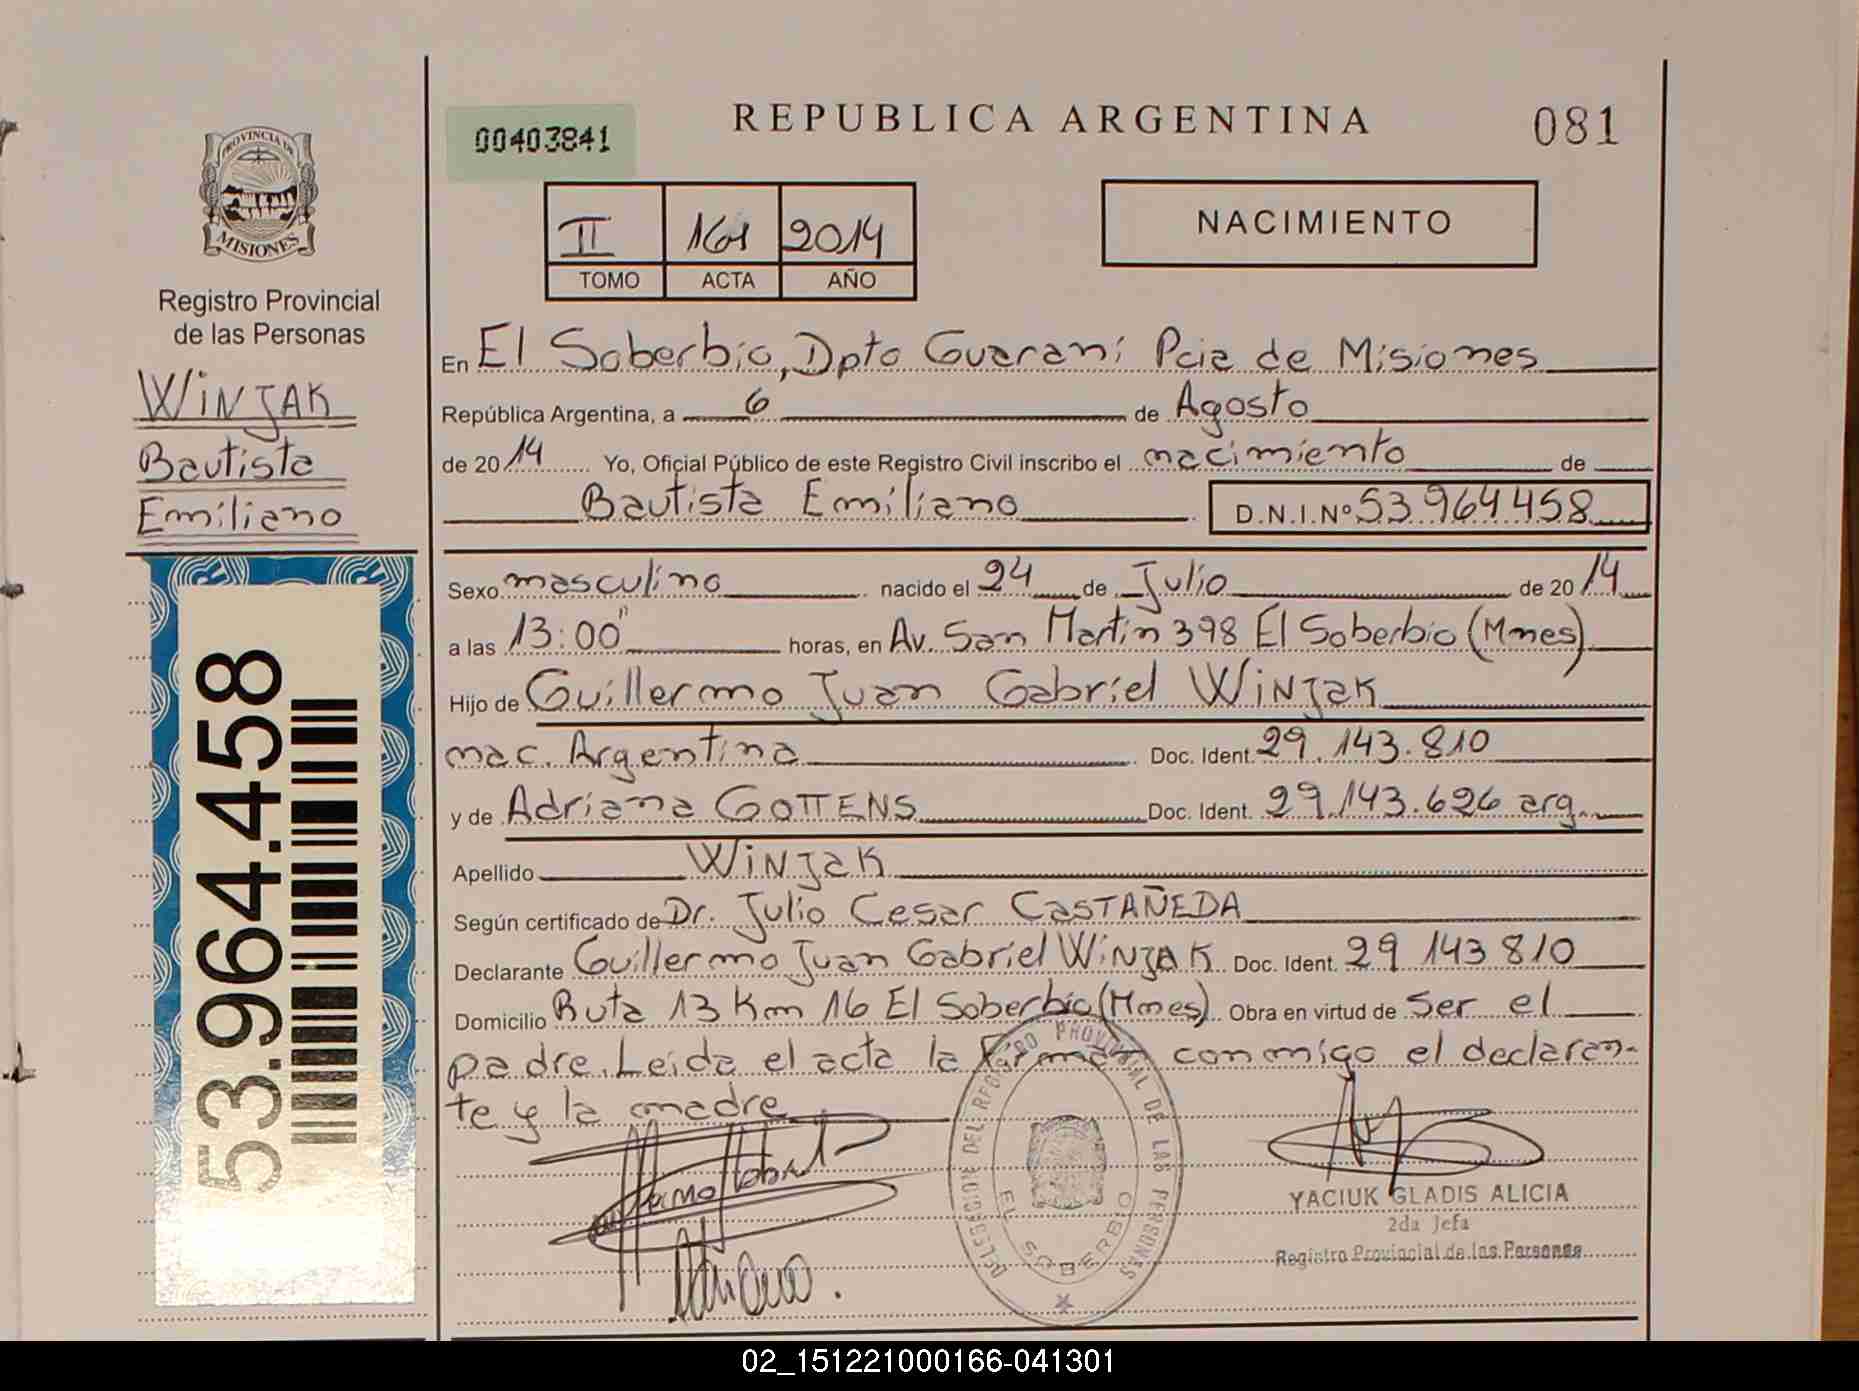 REPUBLICA ARGENTINA
081
00403841
PROVINCIA DE
MISIONES
Registro Provincial
de las Personas
WiNJAK
Bautista
Emiliano
53.964.458
II 161 2014
TOMO ACTA AÑO
NACIMIENTO
En El Soberbio, Dpto Guarani Pcia de Misiones
República Argentina, a 6 de Agosto
de 2014 Yo, Oficial Público de este Registro Civil inscribo el nacimiento de
Bautista Emiliano D.N.I.Nº 53 964 458
Sexo masculino nacido el 24 de Julio de 2014
a las 13:00" horas, en Av. San Martin 398 El Soberbio (Mnes)
Hijo de Guillermo Juan Gabriel WiNJaK
nac. Argentina Doc. Ident. 29.143.810
y de Adriana GOTTENS Doc. Ident. 29.143.626 arg.
Apellido WiNJaK
Según certificado de Dr. Julio Cesar CaSTAÑEDA
Declarante Guillermo Juan Gabriel WiNJAK Doc. Ident. 29 143 810
Domicilio Ruta 13 Km 16 El Soberbio (Mnes) Obra en virtud de Ser el
padre. Leida el acta la firman conmigo el declaran-
te y la madre
DELEGACION DEL REGISTRO PROVINCIAL DE LAS PERSONAS
EL SOBERBIO
YACIUK GLADIS ALICIA
2da Jefa
Registro Provincial de las Personas
02_151221000166-041301